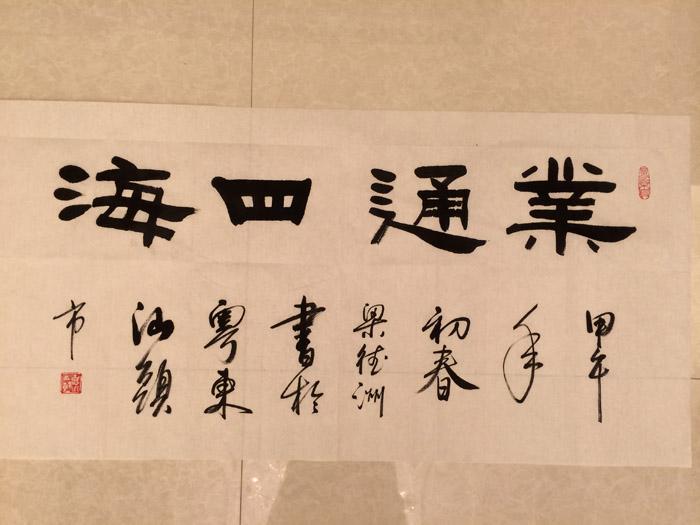 業通四海
甲午
年
初春
梁德洲
書於
粵東
汕頭
市